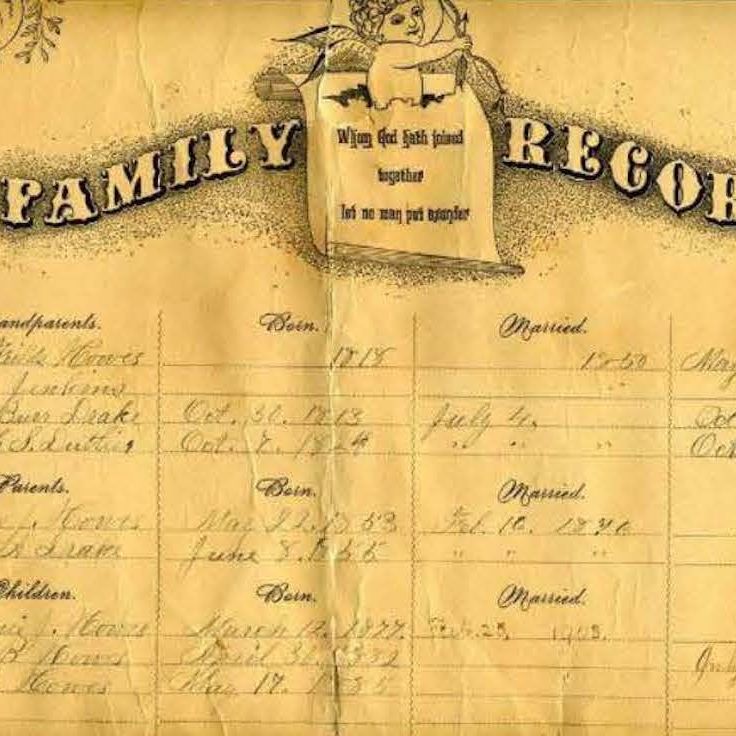 FAMILY RECOR
Whom God hath joined
together
let no man put asunder
andparents. Born. Married.
Howes 1818 1850 May
Jenkins "
Drake Oct. 30. 1813 July 4. Oct
S. Oct. 7. 18 " " " Oct
Parents. Born. Married.
J. Howes May 22. 1853 Feb. 10. 18
Drake June 8. 1855 " " "
Children. Born. Married.
J. Howes March 12. 1877. Feb. 25 1903.
B Howes April 30.
Howes May 17. 1885